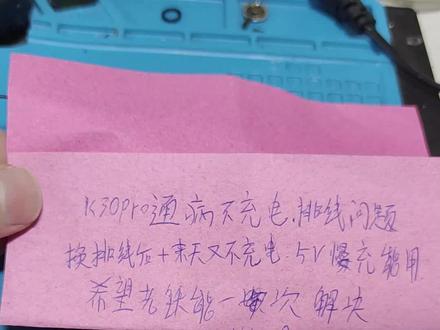 K30pro通病不充电.排线问题
换排线后+来天又不充电.5V慢充能用
希望老铁能一次解决